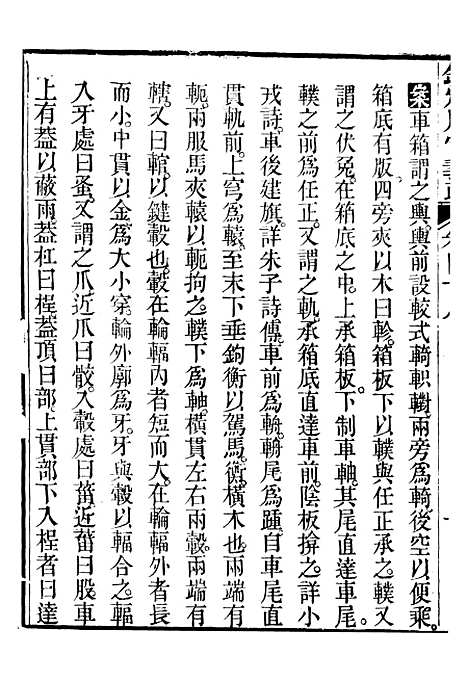 案車箱謂之輿輿前設較式輢軹轛兩旁爲輢後空以便乘
箱底有版四旁夾以木曰軫箱板下以轐與任正承之轐又
謂之伏兔在箱底之中上承箱板下制車軸其尾直達車尾
轐之前爲任正又謂之軌承箱底直達車前陰板揜之詳小
戎詩車後建旗詳朱子詩傳車前爲輈輈尾爲踵自車尾直
貫軌前上穹爲轅至末下垂鉤衡以駕馬衡橫木也衡下有
軛兩服馬夾轅以軛駒之轐下爲軸橫貫左右兩轂兩端有
轄又曰輨以鍵轂也轂在輪輻內者短而大在輪輻外者長
而小中貫以金爲大小穿輪外廓爲牙牙與轂以輻合之輻
入牙處曰蚤又謂之爪近爪曰骹入轂處曰菑近菑曰股車
上有蓋以蔽雨蓋杠曰桯蓋頂曰部上貫部下入桯者曰達